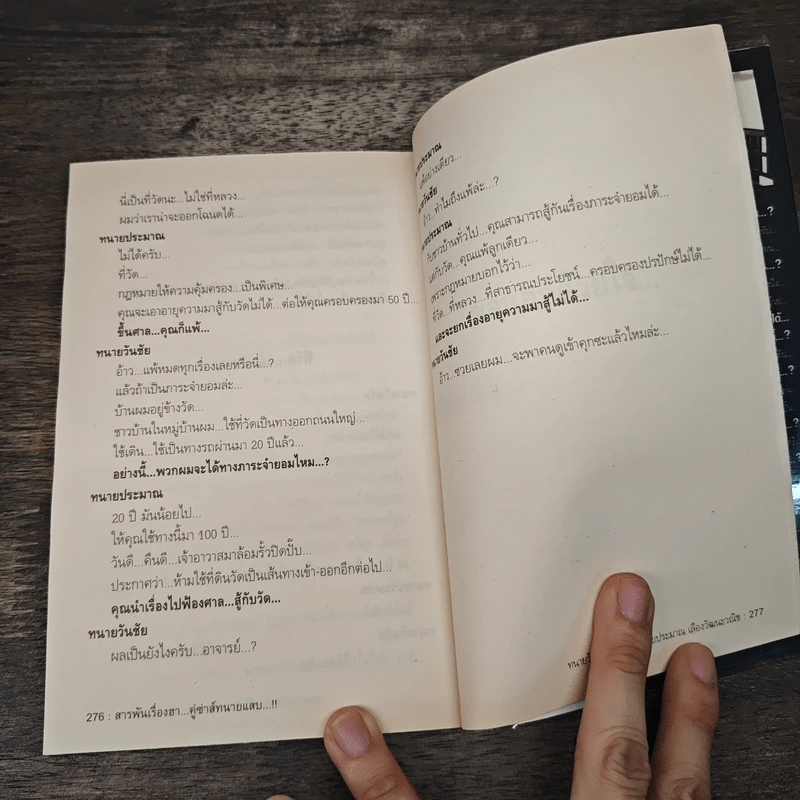 นี่เป็นที่วัดนะ...ไม่ใช่ที่หลวง...
ผมว่าเราน่าจะออกโฉนดได้...
ทนายประมาณ
ไม่ได้ครับ...
ที่วัด...
กฎหมายให้ความคุ้มครอง...เป็นพิเศษ...
คุณจะเอาอายุความมาสู้กับวัดไม่ได้...ต่อให้คุณครอบครองมา 50 ปี...
ขึ้นศาล...คุณก็แพ้...
ทนายวันชัย
อ้าว...แพ้หมดทุกเรื่องเลยหรือนี่...?
แล้วถ้าเป็นภาระจำยอมล่ะ...
บ้านผมอยู่ข้างวัด...
ชาวบ้านในหมู่บ้านผม...ใช้ที่วัดเป็นทางออกถนนใหญ่...
ใช้เดิน...ใช้เป็นทางรถผ่านมา 20 ปีแล้ว...
อย่างนี้...พวกผมจะได้ทางภาระจำยอมไหม...?
ทนายประมาณ
20 ปี มันน้อยไป...
ให้คุณใช้ทางนี้มา 100 ปี...
วันดี...คืนดี...เจ้าอาวาสมาล้อมรั้วปิดปั๊บ...
ประกาศว่า...ห้ามใช้ที่ดินวัดเป็นเส้นทางเข้า-ออกอีกต่อไป...
คุณนำเรื่องไปฟ้องศาล...สู้กับวัด...
ทนายวันชัย
ผลเป็นยังไงครับ...อาจารย์...?
276 : สารพันเรื่องฮา...คู่ซ่าส์ทนายแสบ...!!
ประมาณ
อย่างเดียว...
วันชัย
อ้าว...ทำไมถึงแพ้ล่ะ...?
ประมาณ
กับชาวบ้านทั่วไป...คุณสามารถสู้กันเรื่องภาระจำยอมได้...
แต่กับวัด...คุณแพ้ลูกเดียว...
เพราะกฎหมายบอกไว้ว่า...
ที่วัด...ที่หลวง...ที่สาธารณประโยชน์...ครอบครองปรปักษ์ไม่ได้...
และจะยกเรื่องอายุความมาสู้ไม่ได้...
ทนายวันชัย
อ้าว...ซวยเลยผม...จะพาคนดูเข้าคุกซะแล้วไหมล่ะ...
ประมาณ เลื่องวัฒนะวณิช : 277